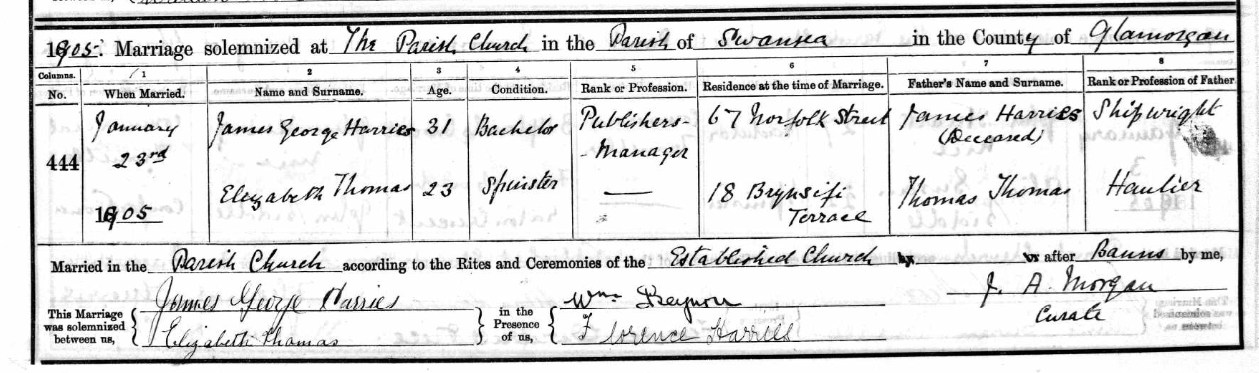 1905. Marriage solemnized at The Parish Church in the Parish of Swansea in the County of Glamorgan
Columns. 1 2 3 4 5 6 7 8
No. When Married. Name and Surname. Age. Condition. Rank or Profession. Residence at the time of Marriage. Father's Name and Surname. Rank or Profession of Father
444
January
23rd
1905
James George Harries 31 Bachelor Publishers-
-Manager
67 Norfolk Street James Harries
(Deceased)
Shipwright
Elizabeth Thomas 23 Spinster —
18 Brynsifi
Terrace
Thomas Thomas Haulier
Married in the Parish Church according to the Rites and Ceremonies of the Established Church by, or after Banns by me,
This Marriage
was solemnized
between us,
James George Harries
Elizabeth Thomas
in the
Presence
of us,
Wm
Florence Harries
J. A. Morgan
Curate